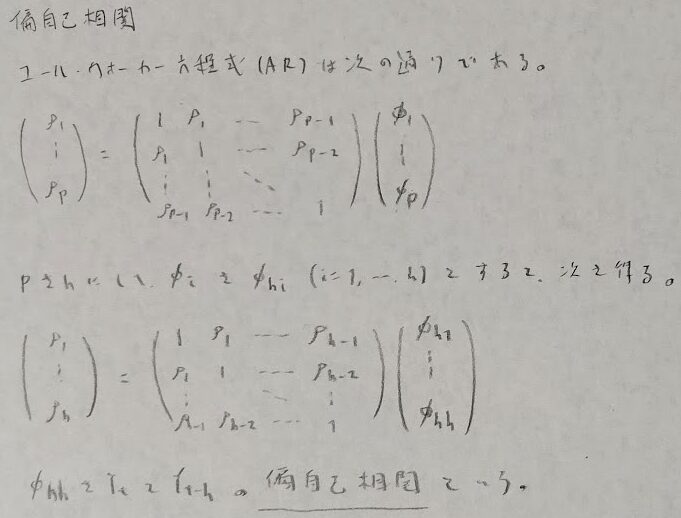 偏自己相関
ユール・ウォーカー方程式(AR)は次の通りである。
(ρ1 ⋮ ρp) = (1 ρ1 … ρp-1
ρ1 1 … ρp-2
⋮ ⋮ ⋱
ρp-1 ρp-2 … 1) (φ1 ⋮ φp)
pをhにし、φiをφhi (i=1, …, h) とすると、次を得る。
(ρ1 ⋮ ρh) = (1 ρ1 … ρh-1
ρ1 1 … ρh-2
⋮ ⋱ ⋮
ρh-1 ρh-2 … 1) (φh1 ⋮ φhh)
φhhをYtとYt-hの偏自己相関という。